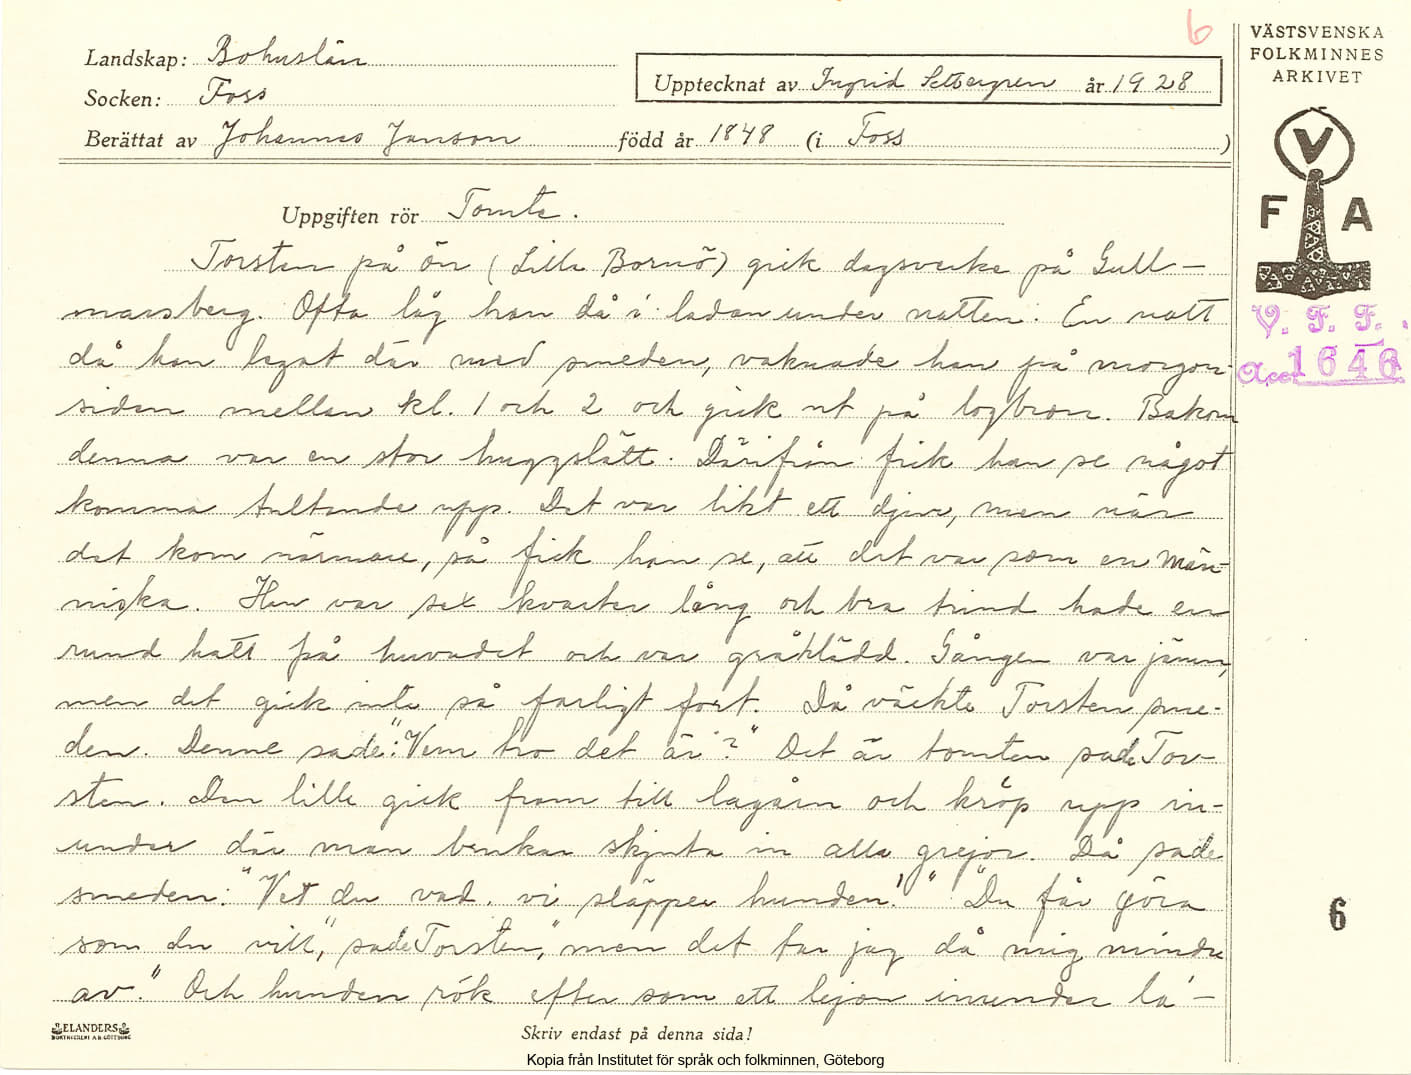 6
VÄSTSVENSKA
FOLKMINNES
ARKIVET
Landskap: Bohuslän
Socken: Foss
Upptecknat av Ingrid Settergren år 1928
Berättat av Johannes Janson född år 1848 (i Foss)
V
F A
V. F. F.
Acc. 1646
Uppgiften rör Tomte.
Torsten på ön (Lilla Bornö) gick dagsverke på Gull-
marsberg. Ofta låg han då i ladan under natten. En natt
då han legat där med smeden, vaknade han på morgon-
sidan mellan kl. 1 och 2 och gick ut på logbron. Bakom
denna var en stor huggslätt. Därifrån fick han se något
komma tultande upp. Det var likt ett djur, men när
det kom närmare, så fick han se, att det var som en män-
niska. Hen var sex kvarter lång och bra trind hade en
rund hatt på huvudet och var gråklädd. Gången var jämn,
men det gick inte så farligt fort. Då väckte Torsten sme-
den. Denne sade: "Vem tro det är?" Det är tomten sade Tor-
sten. Den lille gick fram till lagårn och kröp upp in-
under där man brukar skjuta in alla grejor. Då sade
smeden: "Vet du vad. vi släpper hunden!" "Du får göra
som du vill", sade Torsten, "men det tar jag då mig mindre
av." Och hunden rök efter som ett lejon inunder la-
6
ELANDERS
BOKTRYCKERI A.B. GÖTEBORG
Skriv endast på denna sida!
Kopia från Institutet för språk och folkminnen, Göteborg